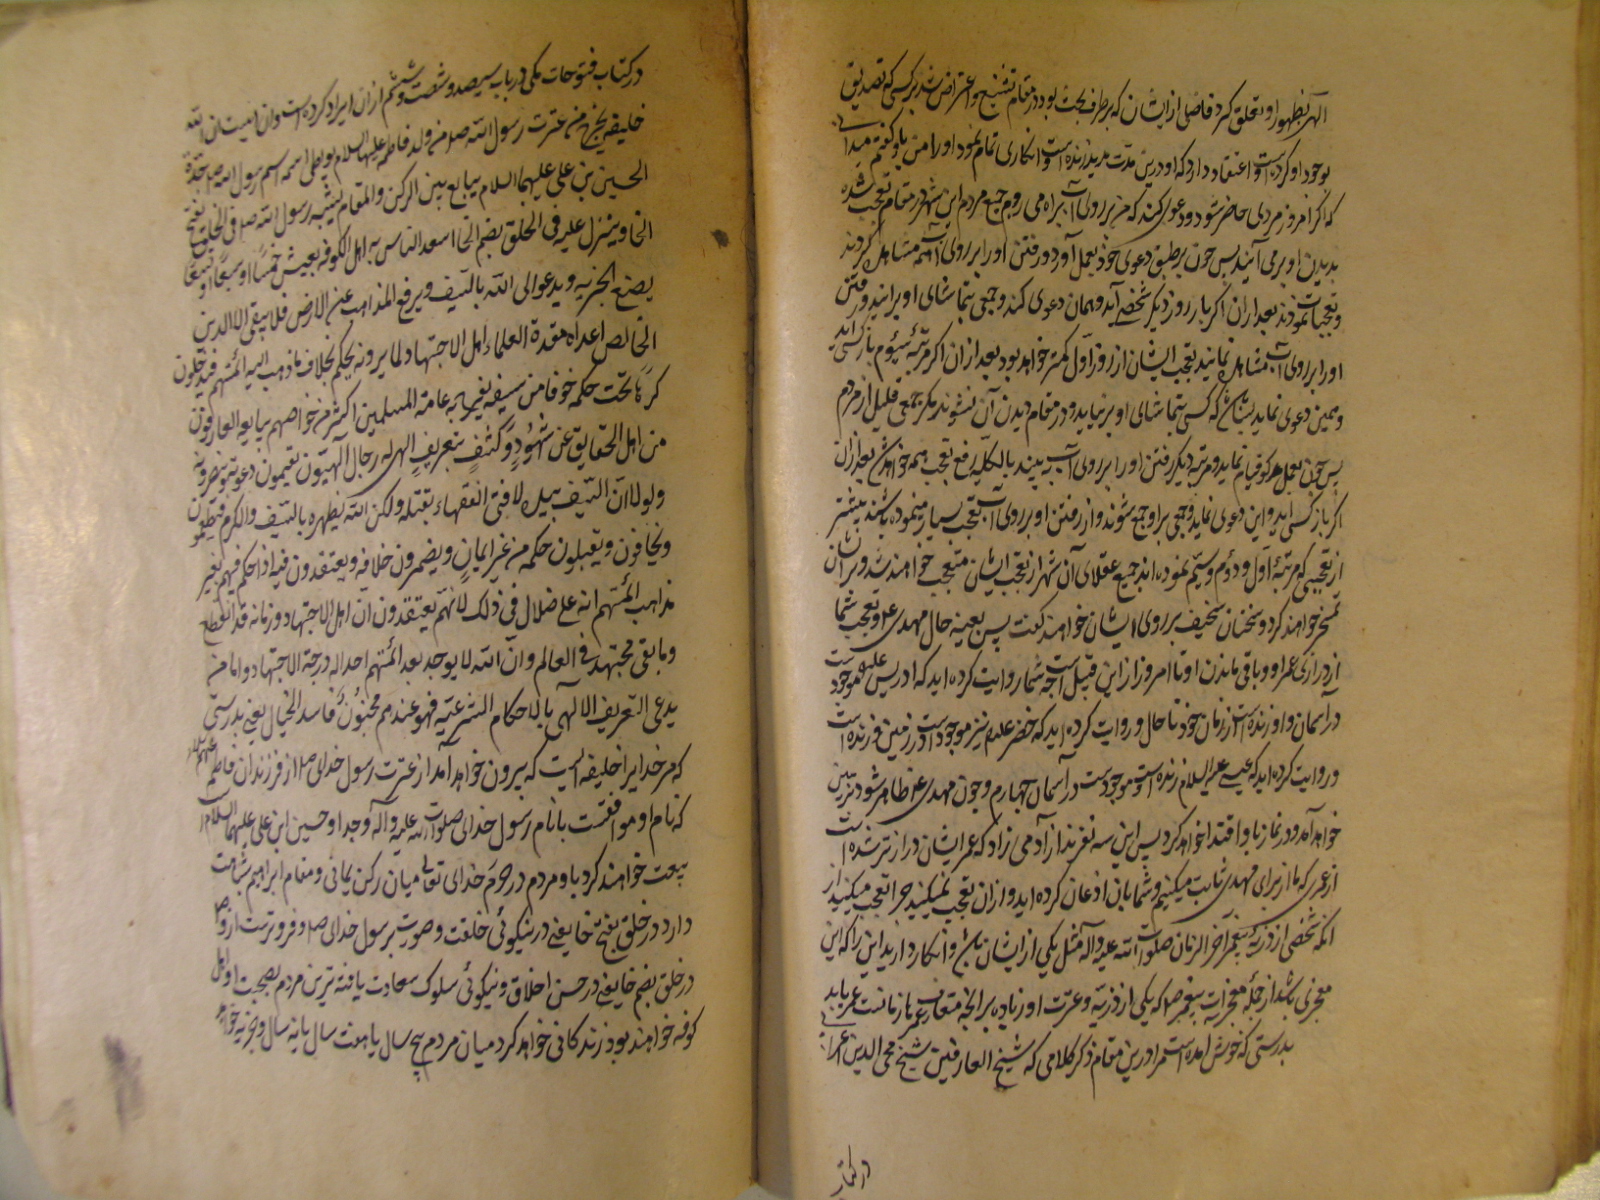 الهر بظهور او تعلق کرد فاضلی از ایشان که بر طرف بحث بود در مقام تشنیع و اعتراض شد بر کسی که تصدیق
بوجود او کرده است و اعتقاد دارد که او درین مدت مدید زنده است و انکاری تمام نمود او را من باو گفتم میدانی
که اگر امروز مردی حاضر شود و دعوی کند که من بر روی آب براه می روم جمیع مردم این شهر در مقام تعجب شده
بدیدن او بر می آیند پس چون بر طبق دعوی خود بعمل آورد و رفتن او را بر روی آب همه مشاهده کردند
و تعجبات نمودند بعد از آن اگر بار روز دیگر شخصی آید و همان دعوی کند و جمعی بتماشای او برایند و رفتن
او را بر روی آب مشاهده نمایند تعجب ایشان از روز اول کمتر خواهد بود بعد از آن اگر مرتبه سیوم باز کسی آید
و همین دعوی نماید که کسی بتماشای او برنیاید و در مقام دیدن آن نشوند مگر جمعی قلیل از مردم
پس چون بعمل هم کو قیام نماید و مرتبه دیگر رفتن او را بر روی آب به بینند بالکلیه رفع تعجب همه خواهد شد بعد از آن
اگر باز کسی آید و این دعوی نماید و جمعی بر او جمع شوند و از رفتن او بر روی آب تعجب بسیار نموده باشند بیشتر
از تعجبی که مرتبهٔ اول و دوم و سیم نموده اند جمیع عقلای آن شهر از تعجب ایشان متعجب خواهند شد و بر ایشان
تمسخر خواهند کرد و سخنان سخیف بر روی ایشان خواهند گفت پس بعینه حال مهدی ع و تعجب شما
از درازی عمر او و باقی ماندن او تا امروز از این قبیل است چه شما روایت کرده اید که ادریس علیه م موجود است
در آسمان و او زنده است از زمان خود تا حال و روایت کرده اید که خضر علیه م نیز موجود است در زمین و زنده است
و روایت کرده اید که عیسی علیه السلام زنده است و موجود است در آسمان چهارم و چون مهدی ع ظاهر شود بزمین
خواهد آمد و در نماز باو اقتدا خواهد کرد پس این سه نفرند از آدمی زاد که عمر ایشان دراز تر شده است
از عمری که ما از برای مهدی ثابت میکنیم و شما بآن اذعان کرده اید و از آن تعجب نمیکنید چرا تعجب میکنید از
آنکه شخصی از ذریه پیغمبر آخر الزمان صلوات الله علیه و آله مثل یکی از ایشان باشد و انکار دارید این را که این
معجزی باشد از جملهٔ معجزات پیغمبر ص که یکی از ذریه و عترت او زیاده بر آنچه متعارف عمر باز مانست عمر یابد
بدرستی که خوش آمده است مرا درین مقام ذکر کلامی که شیخ العارفین شیخ محی الدین اعرابی
در کتاب
در کتاب فتوحات مکی در باب سیصد و شصت و ششم از آن ایراد کرده است و آن اینست ان الله
خلیفه یخرج من عترت رسول الله صلم من ولد فاطمه علیها السلام یواطی اسمه اسم رسول الله ص جده
الحسین بن علی علیهما السلام یبایع بین الرکن و المقام یشبه رسول الله صلم فی الخلق بفتح
الخا و ینزل علیه فی الخلق بضم الخا اسعد الناس به اهل الکوفه یعیش خمسا او سبعا او تسعا
یضع الجزیه و یدعو الی الله بالسیف و یرفع المذاهب عن الارض فلا یبقی الا الدین
الخالص اعداه مقلدة العلماء اهل الاجتهاد لما یرونه یحکم بخلاف ما ذهب الیه ائمتهم فیدخلون
کرها تحت حکمه خوفا من سیفه یفرح به عامة المسلمین اکثر من خواصهم یبایعه العارفون
من اهل الحقایق عن شهود و کشف بتعریف الهی له رجال الهیون یقیمون دعوته و ینصرونه
و لولا ان السیف بیده لافتی الفقهاء بقتله و لکن الله یظهره بالسیف و الکرم فیطمعون
و یخافون و یقبلون حکمه من غیر ایمان و یضمرون خلافه و یعتقدون فیه اذا حکم فیهم بغیر
مذاهب ائمتهم انه علی ضلال فی ذلک لانهم یعتقدون ان اهل الاجتهاد و زمانه قد انقطع
و ما بقی مجتهد فی العالم و ان الله لا یوجد بعد ائمتهم احدا له درجة الاجتهاد و اما من
یدعی التعریف الالهی بالاحکام الشرعیه فهو عندهم مجنون فاسد الخیال یعنی بدرستی
که مر خدایرا خلیفه ایست که بیرون خواهد آمد از عترت رسول خدای ص از فرزندان فاطمه علیهم السلام
که نام او موافقست با نام رسول خدای صلوات الله علیه و آله و جد او حسین ابن علی علیهما السلام
بیعت خواهند کرد باو مردم در حرم خدای تعالی میان رکن یمانی و مقام ابراهیم شباهت
دارد در خلق بفتح خا یعنی در نیکوئی خلقت و صورت برسول خدای ص و فروترست ازو
در خلق بضم خا یعنی در حسن اخلاق و نیکوئی سلوک سعادت یافته ترین مردم بصحبت او اهل
کوفه خواهند بود زندگانی خواهد کرد میان مردم پنج سال یا هفت سال یا نه سال و جزیه خواهد